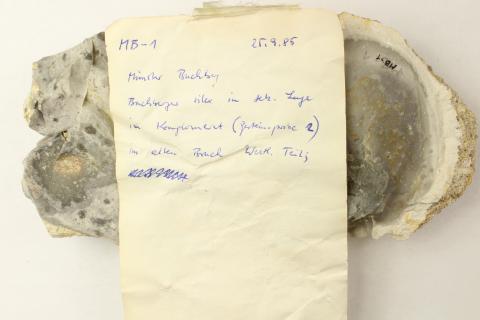 MB-1 25.9.85
Münster Buchberg
Buchberger silex in sek. Lage
im Konglomerat (Gesteinsprobe 2)
im alten Bruch Werk. Teil
MB-1